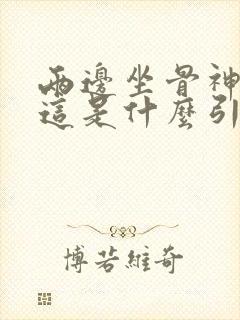 兩邊坐骨神
這是什麼引
博若維奇